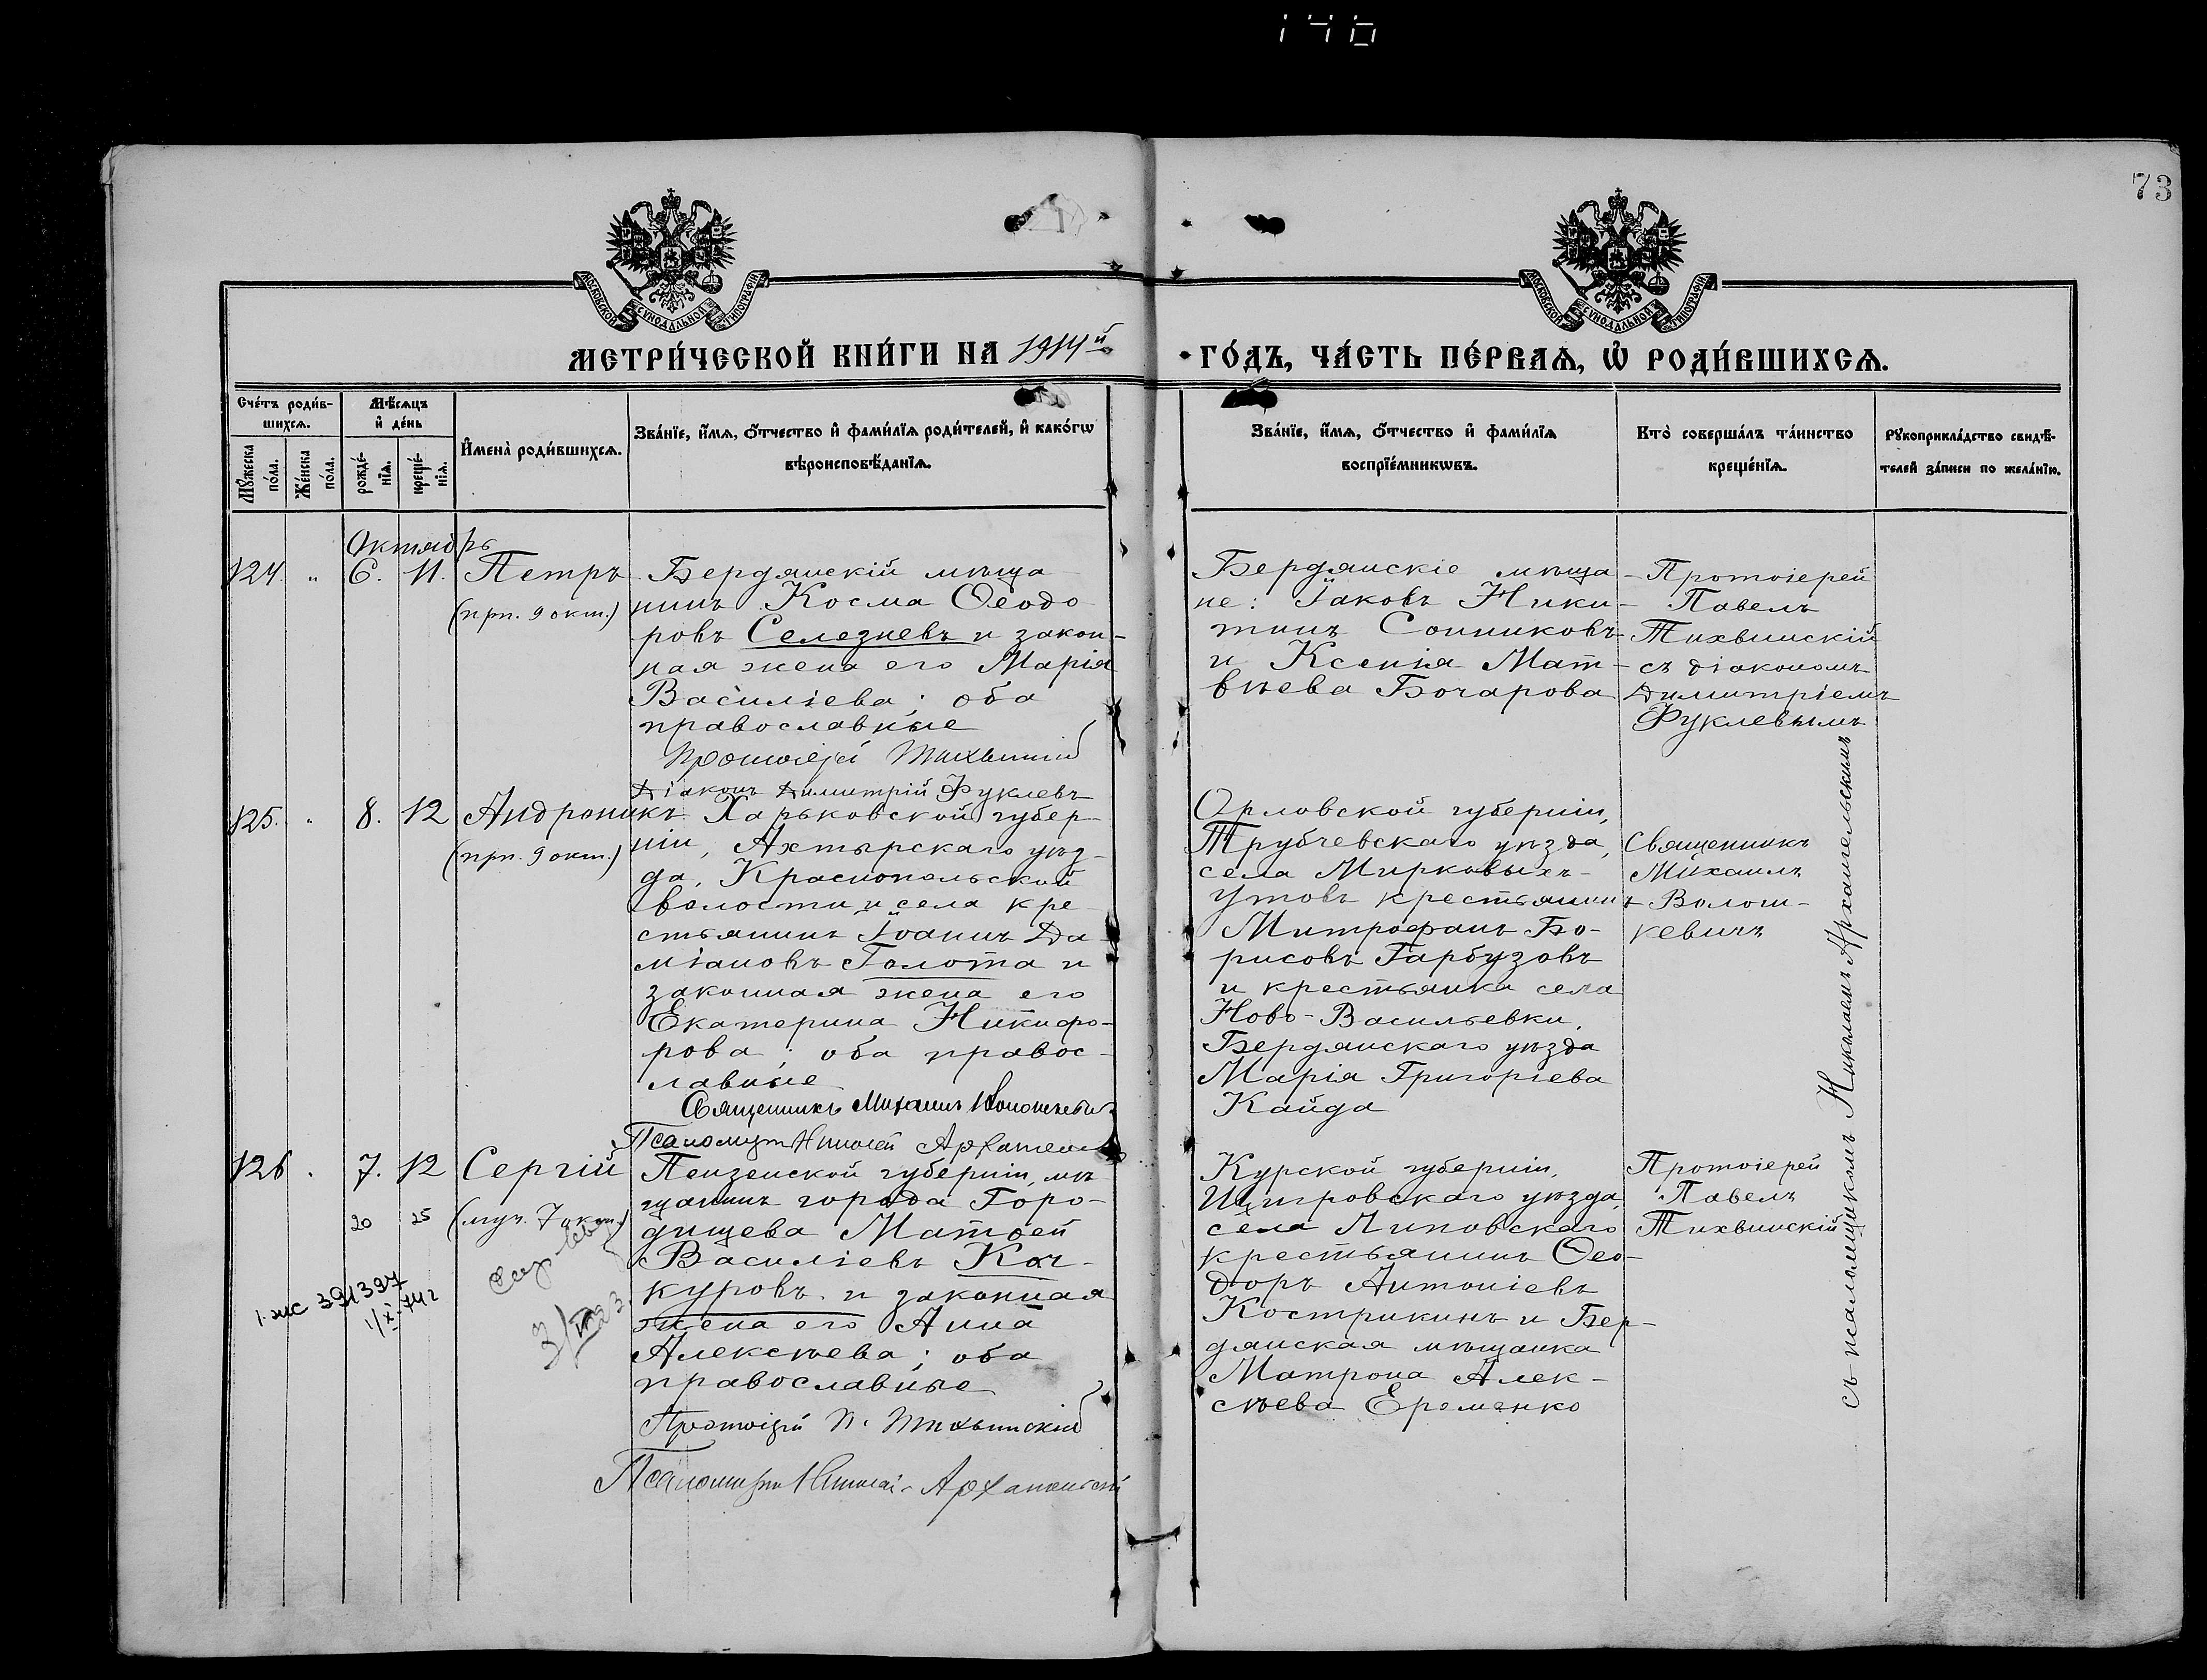 140
73
МОСКОВСКОЙ СѴНОДАЛЬНОЙ ТИПОГРАФІИ
МОСКОВСКОЙ СѴНОДАЛЬНОЙ ТИПОГРАФІИ
МЕТРИ́ЧЕСКОЙ КНИ́ГИ НА 1914й
ГО́ДЪ, ЧА́СТЬ ПЕ́РВАѦ, Ѡ҆ РОДИ́ВШИХСѦ.
Сче́тъ роди́в-
шихсѧ.
Мѹ́жеска по́ла.
Же́нска по́ла.
Мѣ́сѧцъ
и҆ де́нь
рожде́-
нїѧ.
креще́-
нїѧ.
И҆мена̀ роди́вшихсѧ.
Зва́нїе, и҆́мѧ, ѻ҆́тчество и҆ фами́лїѧ роди́телей, и҆ како́гѡ
вѣроисповѣ́данїѧ.
Зва́нїе, и҆́мѧ, ѻ҆́тчество и҆ фами́лїѧ
воспрїе́мникѡвъ.
Кто̀ соверша́лъ та́инство
креще́нїѧ.
Рѹкоприкла́дство свидѣ́-
телей за́писи по жела́нїю.
Октябрь
124. " 6. 11. Петръ
(прп. 9 окт.)
Бердянскій мѣща
нинъ Косма Ѳеодо
ровъ Селезневъ и закон-
ная жена его Марія
Василіева; оба
православные
Протоіерей Тихвинскій
Діаконъ Димитрій Фуклевъ
Бердянскіе мѣща-
не: Іаковъ Ники-
тинъ Сонниковъ
и Ксенія Мат-
вѣева Бочарова
Протоіерей
Павелъ
Тихвинскій
съ діакономъ
Димитріемъ
Фуклевымъ
125. " 8. 12 Андроникъ
(прп. 9 окт.)
Харьковской губер-
ніи, Ахтырскаго уѣз-
да, Краснопольской
волости и села кре
стьянинъ Іоаннъ Да-
міановъ Голота и
законная жена его
Екатерина Никифо-
рова; оба правос-
лавные
Священникъ Михаилъ Волошкевичъ
Псаломщ Николай Архангельскій
Орловской губерніи,
Трубчевскаго уѣзда,
села Мирковыхъ-
Утовъ крестьянинъ
Митрофанъ Бо-
рисовъ Гарбузовъ
и крестьянка села
Ново-Васильевки,
Бердянскаго уѣзда
Марія Григоріева
Кайда
Священникъ
Михаилъ
Волош-
кевичъ
съ псаломщикомъ Николаемъ Архангельскимъ
126 " 7. 12 Сергій
20 25 (муч. 7 окт.)
1. жс 391397
1/X-74 г
Пензенской губерніи, мѣ
щанинъ города Горо-
дищева Матѳей
Василіевъ Кач-
куровъ и законная
жена его Анна
Алексѣева; оба
православные
Протоіерей П. Тихвинскій
Псаломщикъ Николай Архангельскій
Курской губерніи,
Щигровскаго уѣзда,
села Липовскаго
крестьянинъ Ѳео-
доръ Антоніевъ
Кострикинъ и Бер-
дянская мѣщанка
Матрона Алек-
сѣева Еременко
Протоіерей
Павелъ
Тихвинскій